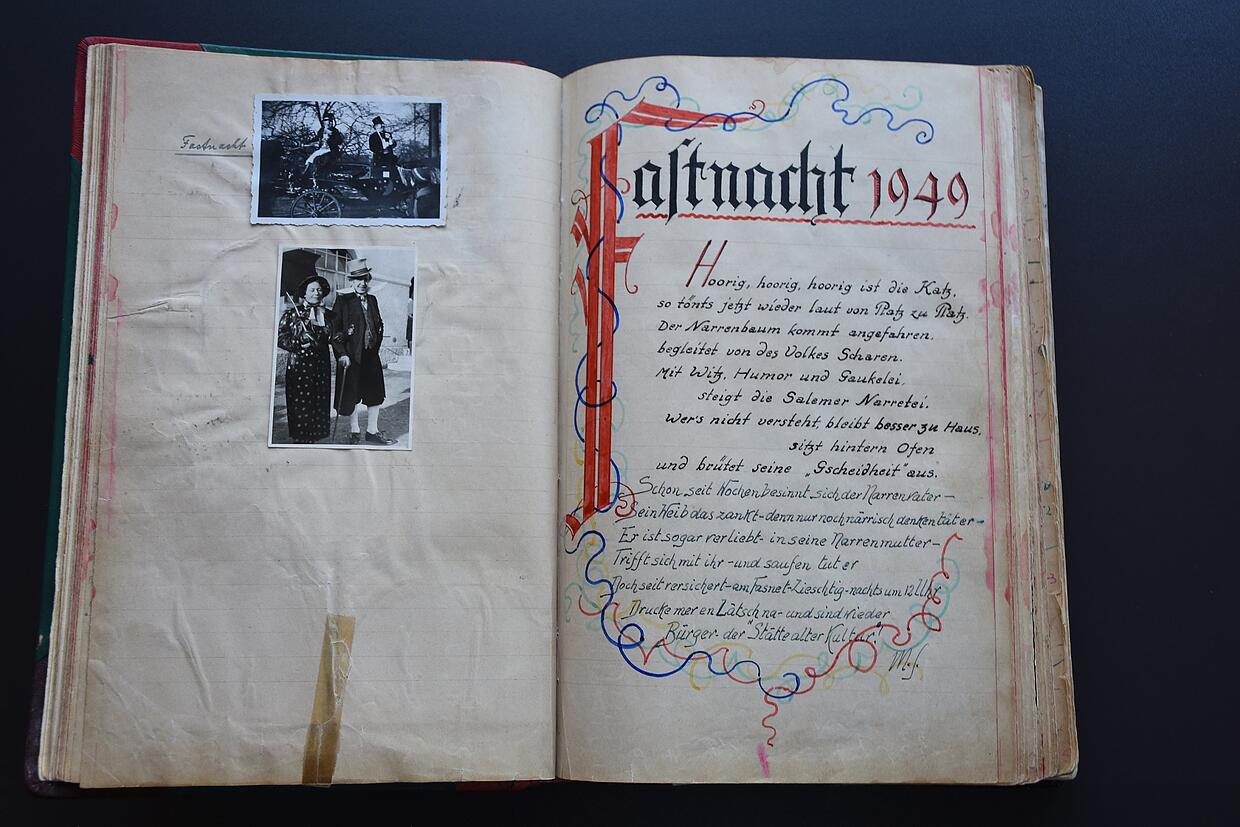 Fastnacht
Fastnacht 1949
Hoorig, hoorig, hoorig ist die Katz,
so tönts jetzt wieder laut von Platz zu Platz.
Der Narrenbaum kommt angefahren,
begleitet von des Volkes Scharen.
Mit Witz, Humor und Gaukelei,
steigt die Salemer Narretei.
Wer's nicht versteht, bleibt besser zu Haus,
sitzt hintern Ofen
und brütet seine „Gscheidheit" aus.
Schon seit Wochen besinnt sich der Narrenvater –
Sein Weib das zankt – denn nur noch närrisch denken tät er –
Er ist sogar verliebt – in seine Narrenmutter –
Trifft sich mit ihr – und saufen tut er
Doch seit versichert – am Fasnet-Zieschtig – nachts um 12 Uhr
Drucke mer en Lätsch na – und sind wieder
Bürger – der "Stätte alter Kultur."